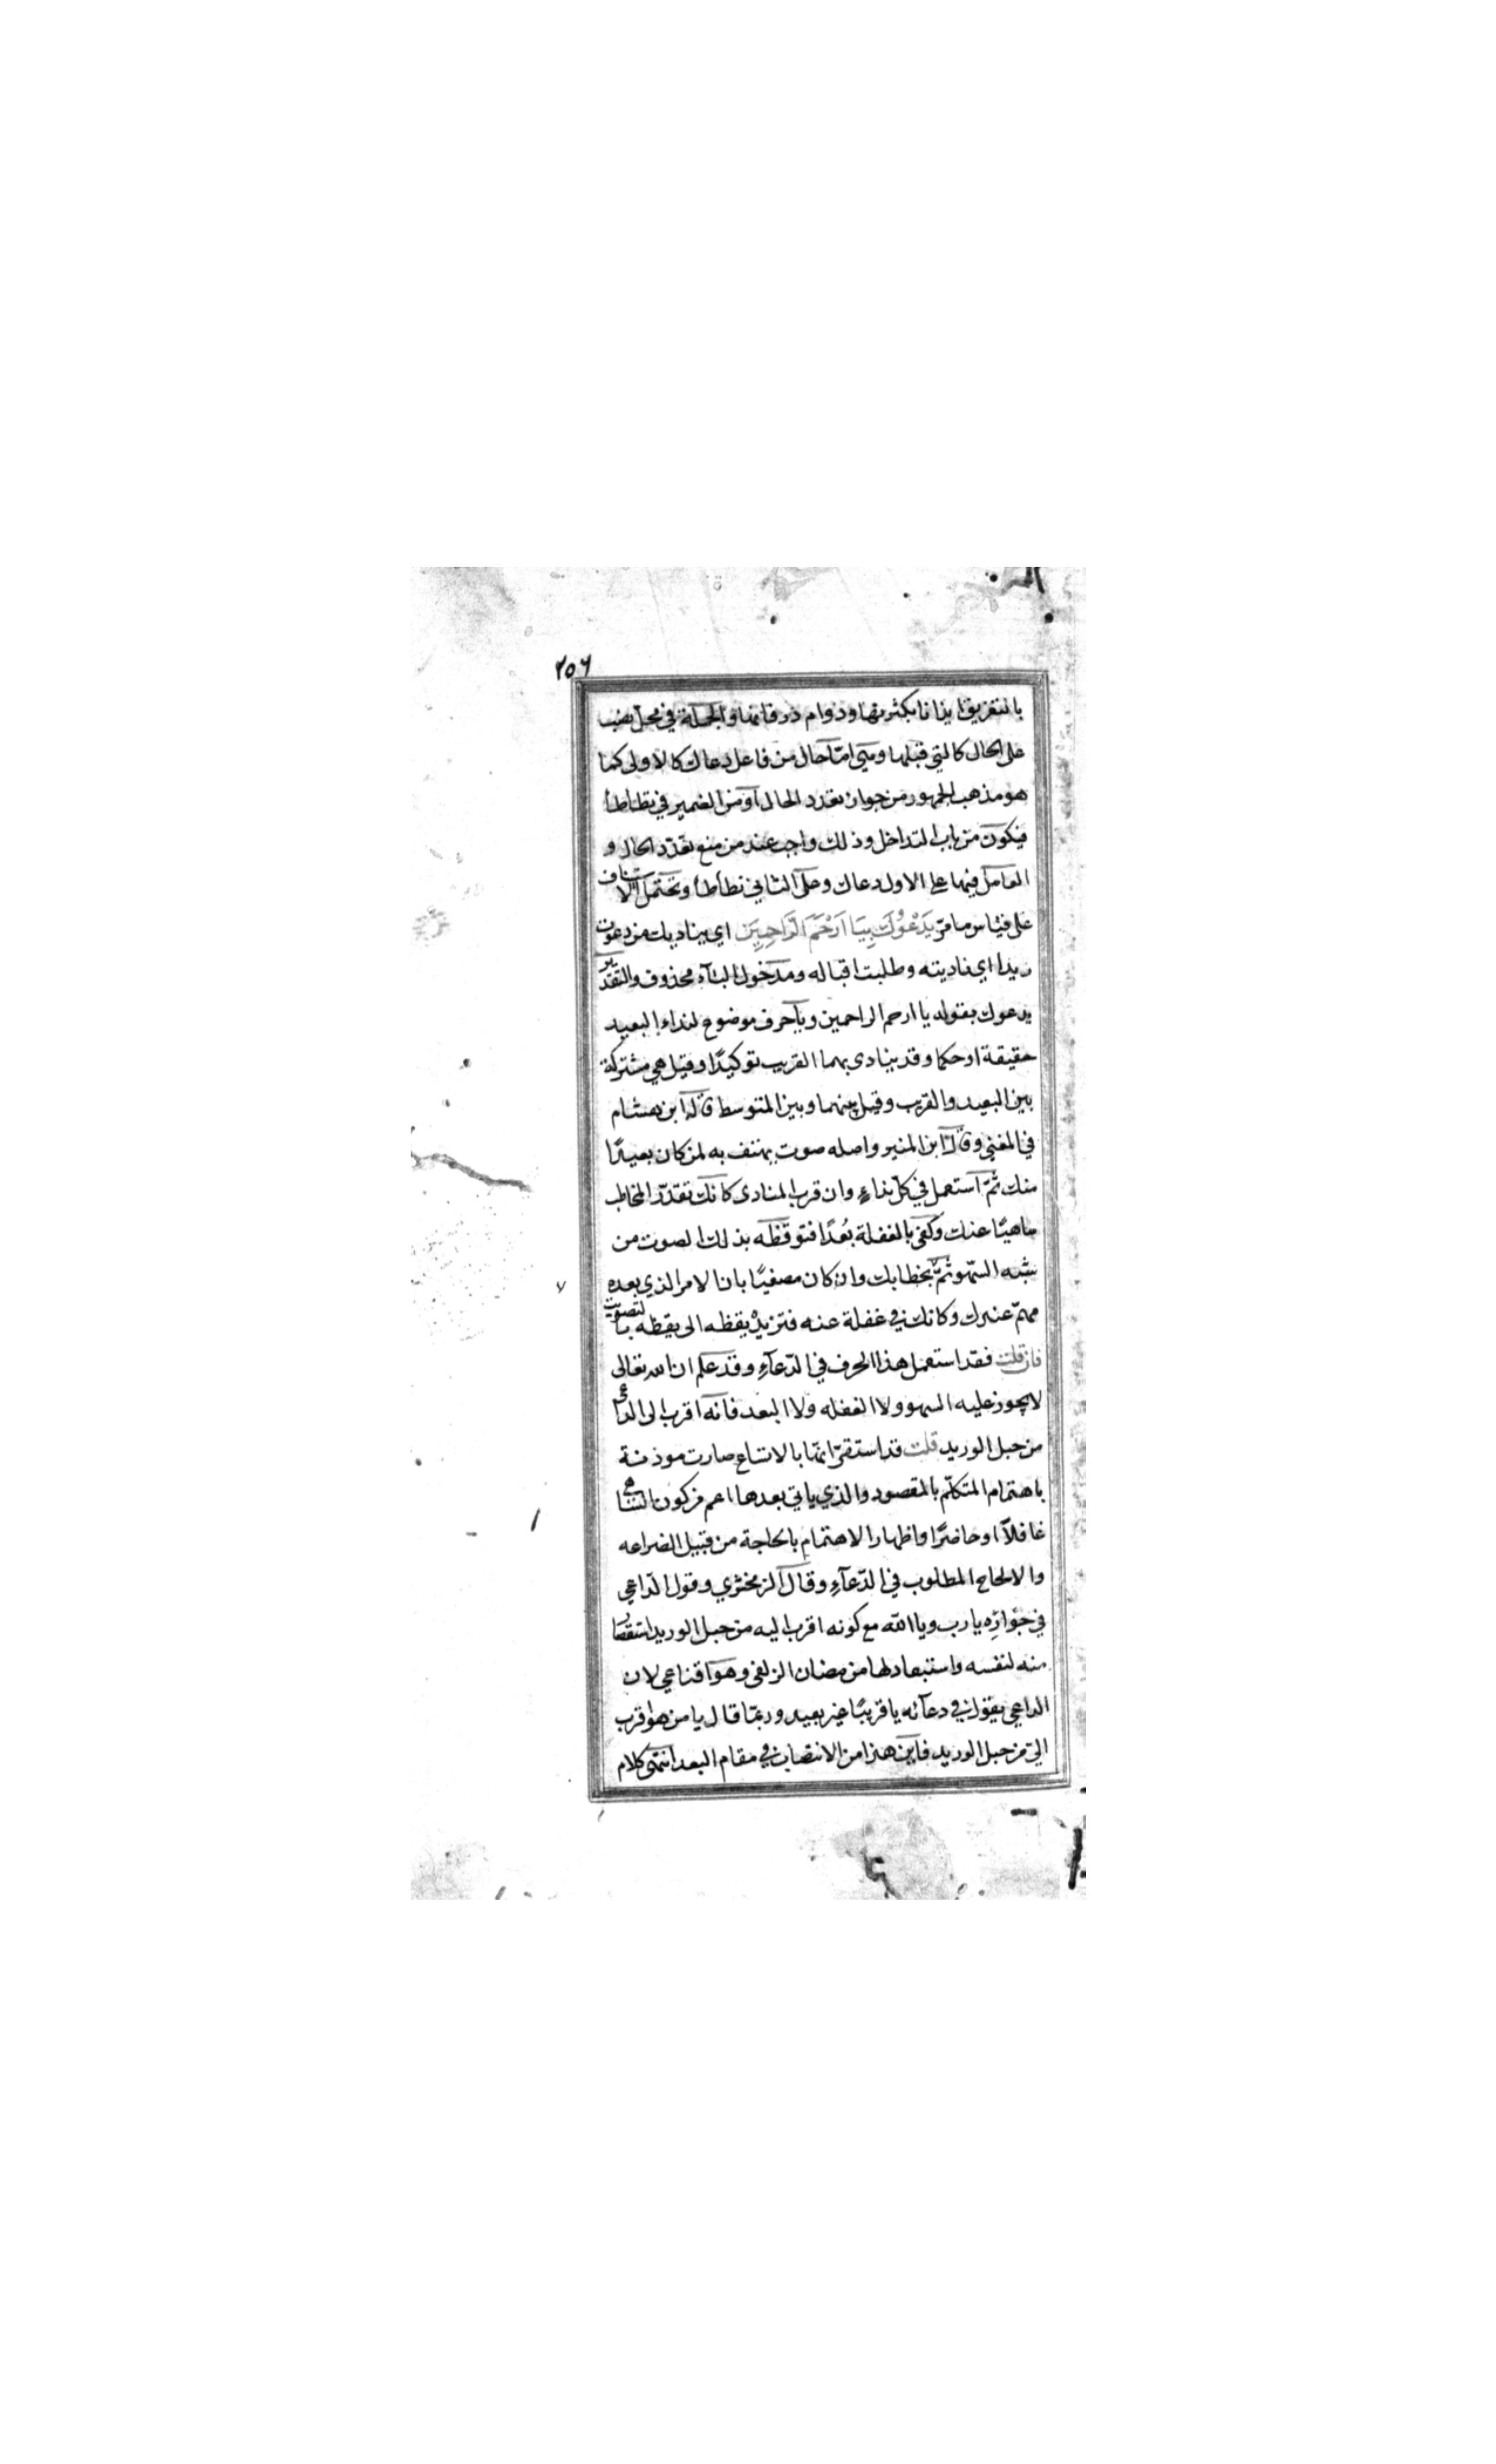 ٢٥٦
بالتغريق ايذانا بكثرتها ودوام ذرفانها والجملة في محل نصب
على الحال كالتي قبلها وهي امّا حال من فاعل دعاك كالاولى كما
هو مذهب الجمهور من جواز تعدد الحال او من الضمير في تطأطأ
فيكون من باب التداخل وذلك واجب عند من منع تعدّد الحال و
العامل فيها على الاول دعاك وعلى الثاني تطأطأ وتحتمل الاستيناف
على قياس ما مرّ يَدْعُوكَ بِيَا اَرْحَمَ الرَّاحِمِينَ اي يناديك من دعوت
زيدا اي ناديته وطلبت اقباله ومدخول البآء محذوف والتقدير
يدعوك بقوله يا ارحم الراحمين ويا حرف موضوع لنداء البعيد
حقيقة او حكما وقد ينادى بهما القريب توكيدًا وقيل هي مشتركة
بين البعيد والقريب وقيل بينهما وبين المتوسط قاله ابن هشام
في المغني وقال ابن المنير واصله صوت يهتف به لمن كان بعيدًا
منك ثمّ استعمل في كلّ نداءٍ وان قرب المنادى كانّك تقدّر المخاطب
ساهيًا عنك وكفى بالغفلة بُعْدًا فتوقظه بذلك الصوت من
شبه السّهو ثمّ بخطابك وان كان مصغيًا بان الامر الذي بعده
مهمّ عندك وكانك في غفلة عنه فتزيدْ يقظه الى يقظه بالتصويت
فان قلت فقد استعمل هذا الحرف في الدّعآءِ وقد علم ان الله تعالى
لا يجوز عليه السهو ولا الغفله ولا البعد فانّه اقرب الى الداعي
من حبل الوريد قلت قد استقرّ انّها بالاتساع صارت موذنة
باهتمام المتكلّم بالمقصود والذي ياتي بعدها اعم من كون السامع
غافلًا او حاضرًا واظهار الاهتمام بالحاجة من قبيل الضراعه
والالحاح المطلوب في الدّعآءِ وقال الزمخشري وقول الدّاعي
في جؤارِه يا رب ويا الله مع كونه اقرب اليه من حبل الوريد استقصار
منه لنفسه واستبعاد لها من مضان الزلفى وهو اقناعي لان
الداعي يقول في دعآئه يا قريبًا غير بعيد وربّما قال يا من هو اقرب
اليّ من حبل الوريد فاين هذا من الانتصاب في مقام البعد انتهى كلام